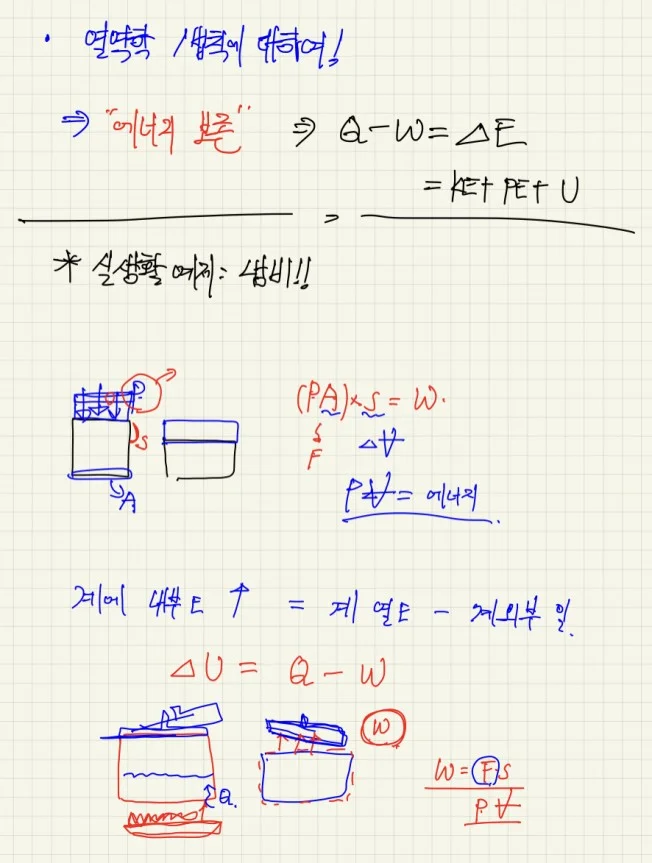 • 열역학 1법칙에 대하여!
⇒ "에너지 보존" ⇒ Q-W=△E
=KE+PE+U
* 실생활 예제: 냄비!!
P
S
A
(PA)×S=W.
F
△V
PV=에너지.
계에 내부E ↑ = 계 열E - 계외부 일.
△U = Q - W
W
Q
W=FS
PV